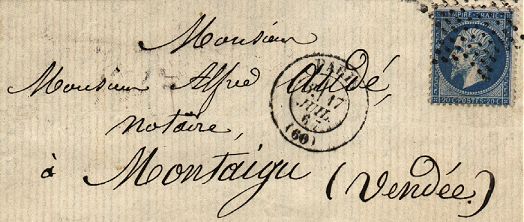 Monsieur
Monsieur Alfred Audé,
notaire,
à Montaigu (Vendée.)
PARIS
17
JUIL.
67
(60)
EMPIRE FRANC
20 C POSTES 20 C